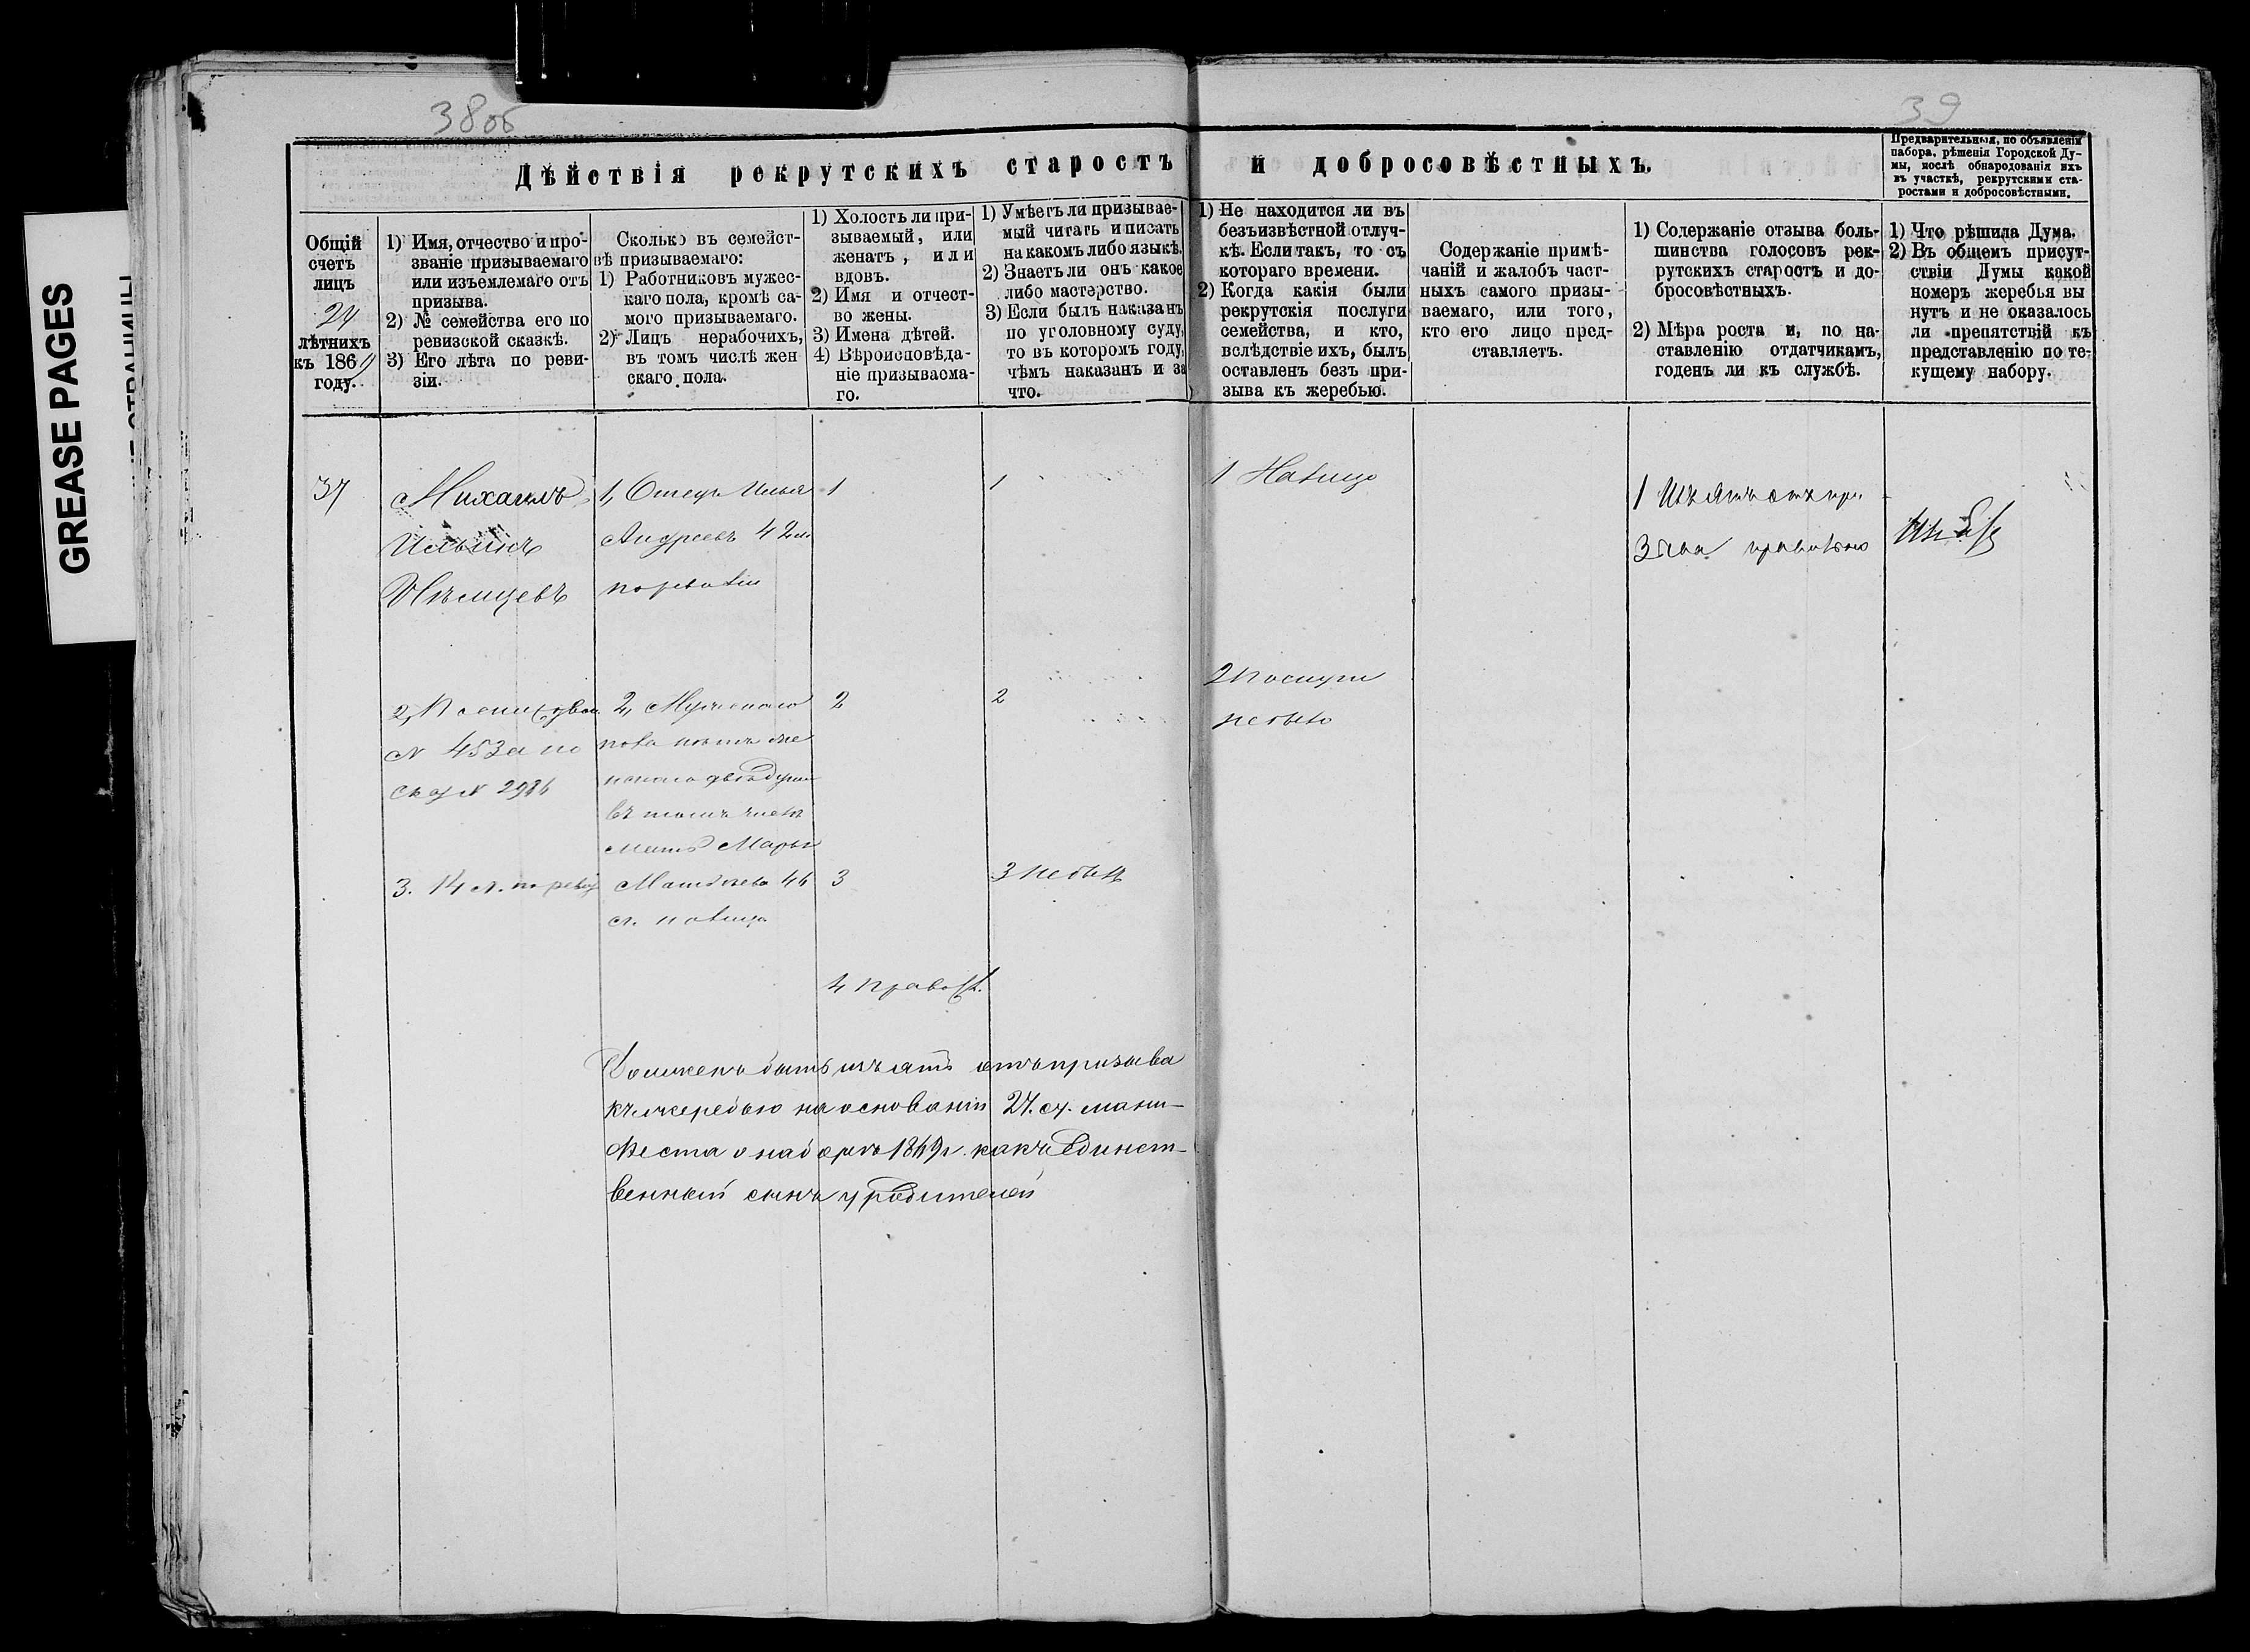 GREASE PAGES
38об
39
Дѣйствія рекрутскихъ старостъ и добросовѣстныхъ.
Предварительныя, по объявленіи
набора, рѣшенія Городской Ду-
мы, послѣ обнародованія ихъ
въ участкѣ, рекрутскими ста-
ростами и добросовѣстными.
Общій
счетъ
лицъ
24
лѣтнихъ
къ 1869
году.
1) Имя, отчество и про-
званіе призываемаго
или изъемлемаго отъ
призыва.
2) № семейства его по
ревизской сказкѣ.
3) Его лѣта по реви-
зіи.
Сколько въ семейст-
вѣ призываемаго:
1) Работниковъ мужес-
каго пола, кромѣ са-
мого призываемаго.
2) Лицъ нерабочихъ,
въ томъ числѣ жен
скаго пола.
1) Холостъ ли при-
зываемый, или
женатъ, или
вдовъ.
2) Имя и отчест-
во жены.
3) Имена дѣтей.
4) Вѣроисповѣда-
ніе призываема-
го.
1) Умѣетъ ли призывае-
мый читать и писать
на какомъ либо языкѣ.
2) Знаетъ ли онъ какое
либо мастерство.
3) Если былъ наказанъ
по уголовному суду,
то въ которомъ году,
чѣмъ наказанъ и за
что.
1) Не находится ли въ
безъизвѣстной отлуч-
кѣ. Если такъ, то съ
котораго времени.
2) Когда какія были
рекрутскія послуги
семейства, и кто,
вслѣдствіе ихъ, былъ
оставленъ безъ при-
зыва къ жеребью.
Содержаніе примѣ-
чаній и жалобъ част-
ныхъ самого призы-
ваемаго, или того,
кто его лицо пред-
ставляетъ.
1) Содержаніе отзыва боль-
шинства голосовъ рек-
рутскихъ старостъ и до-
бросовѣстныхъ.
2) Мѣра роста и, по на-
ставленію отдатчикамъ,
годенъ ли къ службѣ.
1) Что рѣшила Дума.
2) Въ общемъ присут-
ствіи Думы какой
номеръ жеребья вы
нутъ и не оказалось
ли препятствій къ
представленію по те-
кущему набору.
37
Михаилъ
Ильинъ
Нѣмцевъ
2,
№ 453 а по
сказ № 2986
3. 14 л. по ревиз
1, Отецъ Илья
Андреевъ 42 л.
по ревизіи
2, Мужескаго
пола нѣтъ же
нскаго двѣ души
въ томъ числѣ
мать Марья
Матвѣева 46
л. на лицо
1
2
3
4 Правосл.
1
2
3 не былъ
Долженъ быть изъятъ отъ призыва
къ жеребью на основаніи 24. ст. мани-
феста о наборѣ 1869 г. какъ Единст-
венный сынъ у родителей
1 На лицо
2 послуги
не было
1 Изъятъ отъ при
зыва